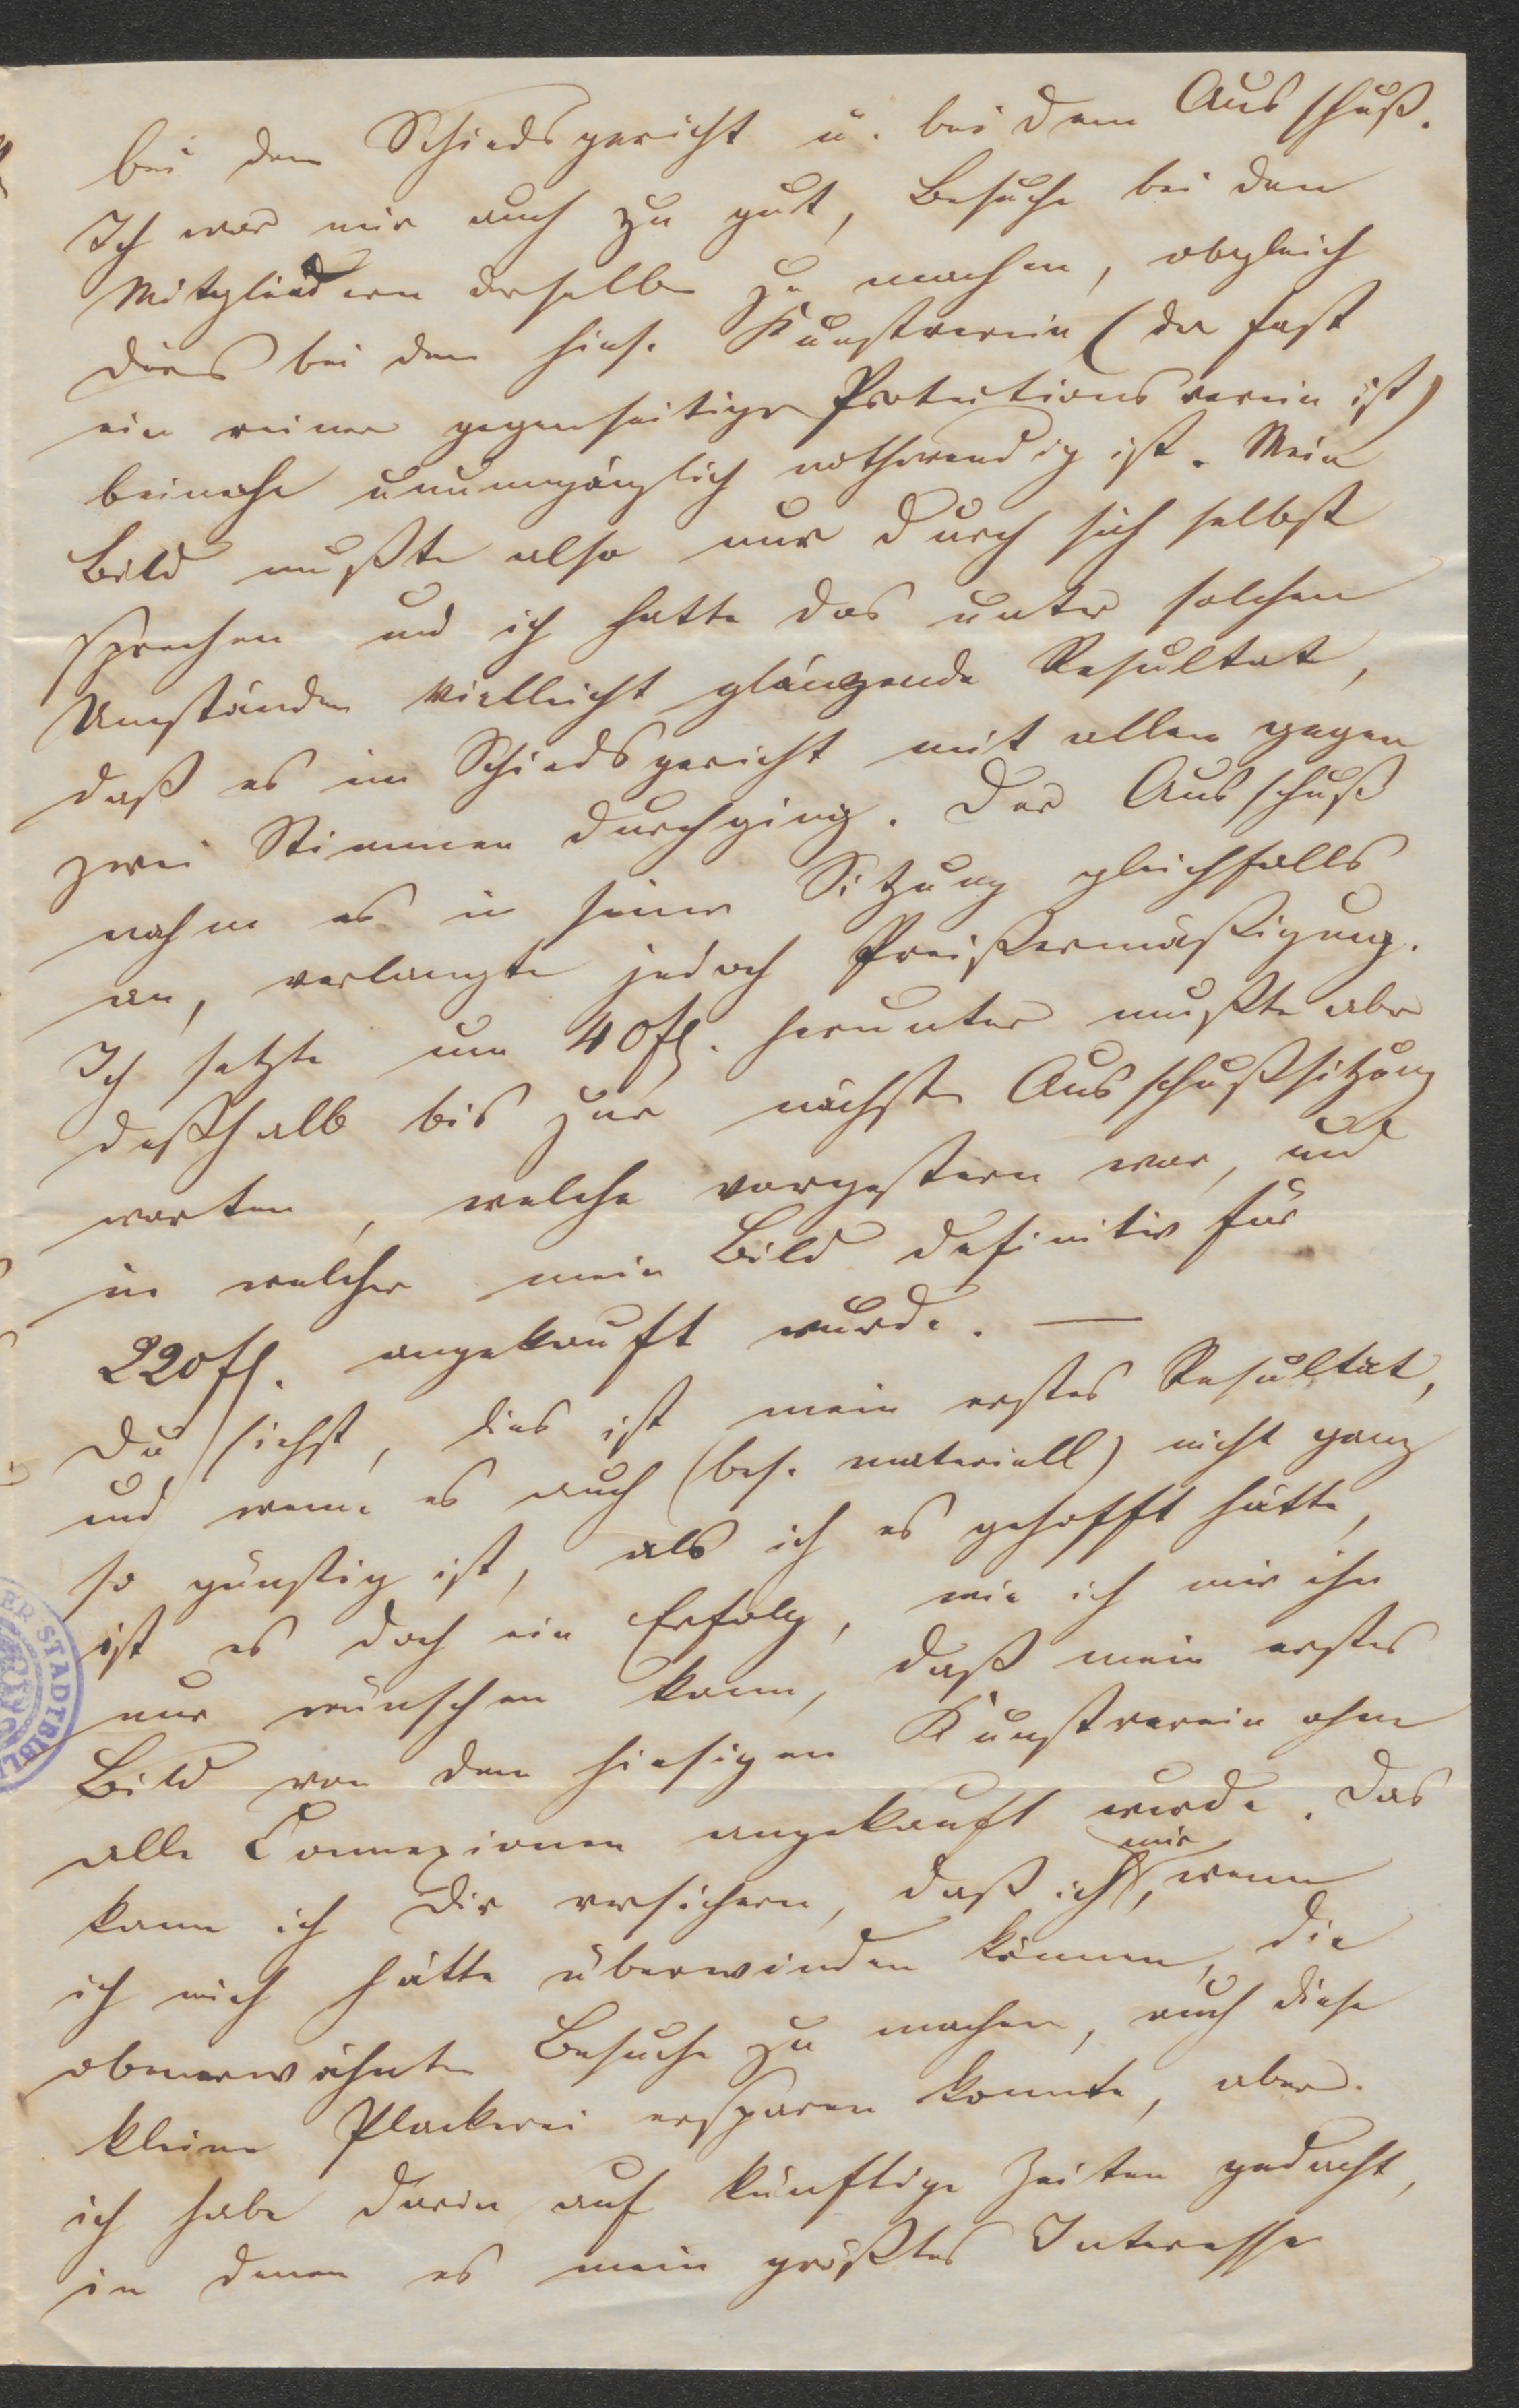 bei dem Schiedsgericht u. bei dem Ausschuß.
Ich war mir auch zu gut, Besuche bei den
Mitgliedern derselben zu machen, obgleich
dies bei dem hies. Kunstverein (der fast
ein reiner gegenseitiger Protectionsverein ist)
beinahe unumgänglich nothwendig ist. Mein
Bild mußte also nur durch sich selbst
sprechen und ich hatte das unter solchen
Umständen vielleicht glänzende Resultat,
daß es im Schiedsgericht mit allen gegen
zwei Stimmen durchging. Der Ausschuß
nahm es in seiner Sitzung gleichfalls
an, verlangte jedoch Preißermäßigung.
Ich setzte um 40 fl. herunter mußte aber
deßhalb bis zur nächsten Ausschußsitzung
warten, welche vorgestern war, und
in welcher mein Bild definitiv für
220 fl. angekauft wurde. —
Du siehst, dies ist mein erstes Resultat,
und wenn es auch (bes. materiell) nicht ganz
so günstig ist, als ich es gehofft hätte,
ist es doch ein Erfolg, wie ich mir ihn
nur wünschen kann, daß mein erstes
Bild von dem hiesigen Kunstverein ohne
alle Connexionen angekauft wurde. Das
kann ich Dir versichern, daß ich mir, wenn
ich mich hätte überwinden können, die
obenerwähnten Besuche zu machen, auch diese
kleine Plackerei ersparen konnte, aber
ich habe darin auf künftige Zeiten gedacht,
in denen es mein größtes Interesse
ER STADTBIBL